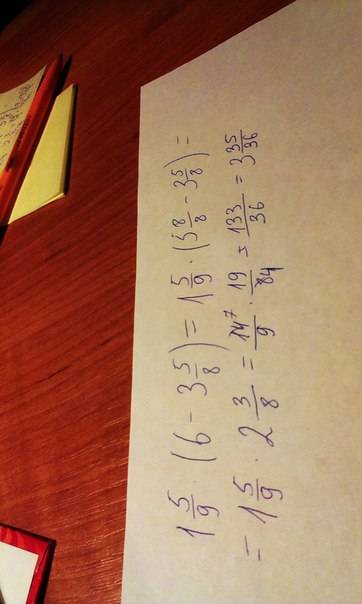 1 5/9 · (6 - 3 5/8) = 1 5/9 · (5 8/8 - 3 5/8) =
= 1 5/9 · 2 3/8 = 14⁷/9 · 19/84 = 133/36 = 3 35/36